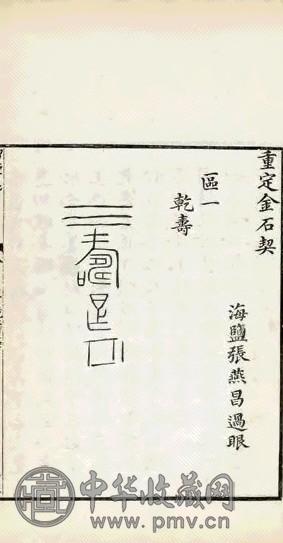 重定金石契
海鹽張燕昌過眼
區一
乾壽
中华收藏网
www.pmv.cn